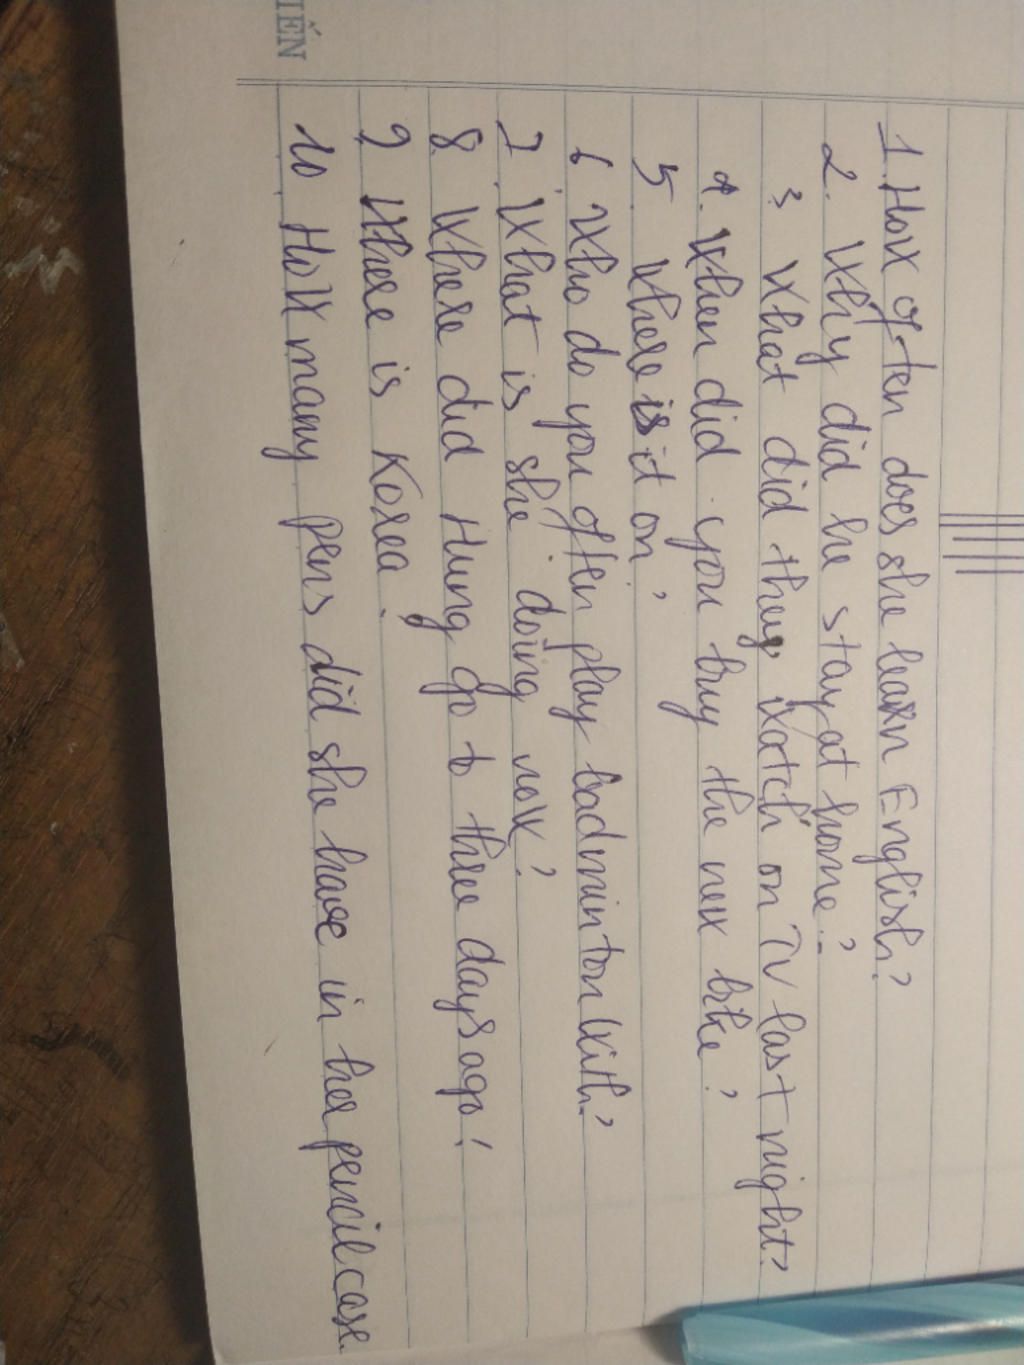 IẾN
1. How often does she learn English?
2. Why did he stay at home?
3 What did they watch on TV last night?
4. When did you buy the new bike?
5 Where is it on?
6 Who do you often play badminton with?
7. What is she doing now?
8 Where did Hung go to three days ago?
9 Where is Korea?
10 How many pens did she have in her pencil case.